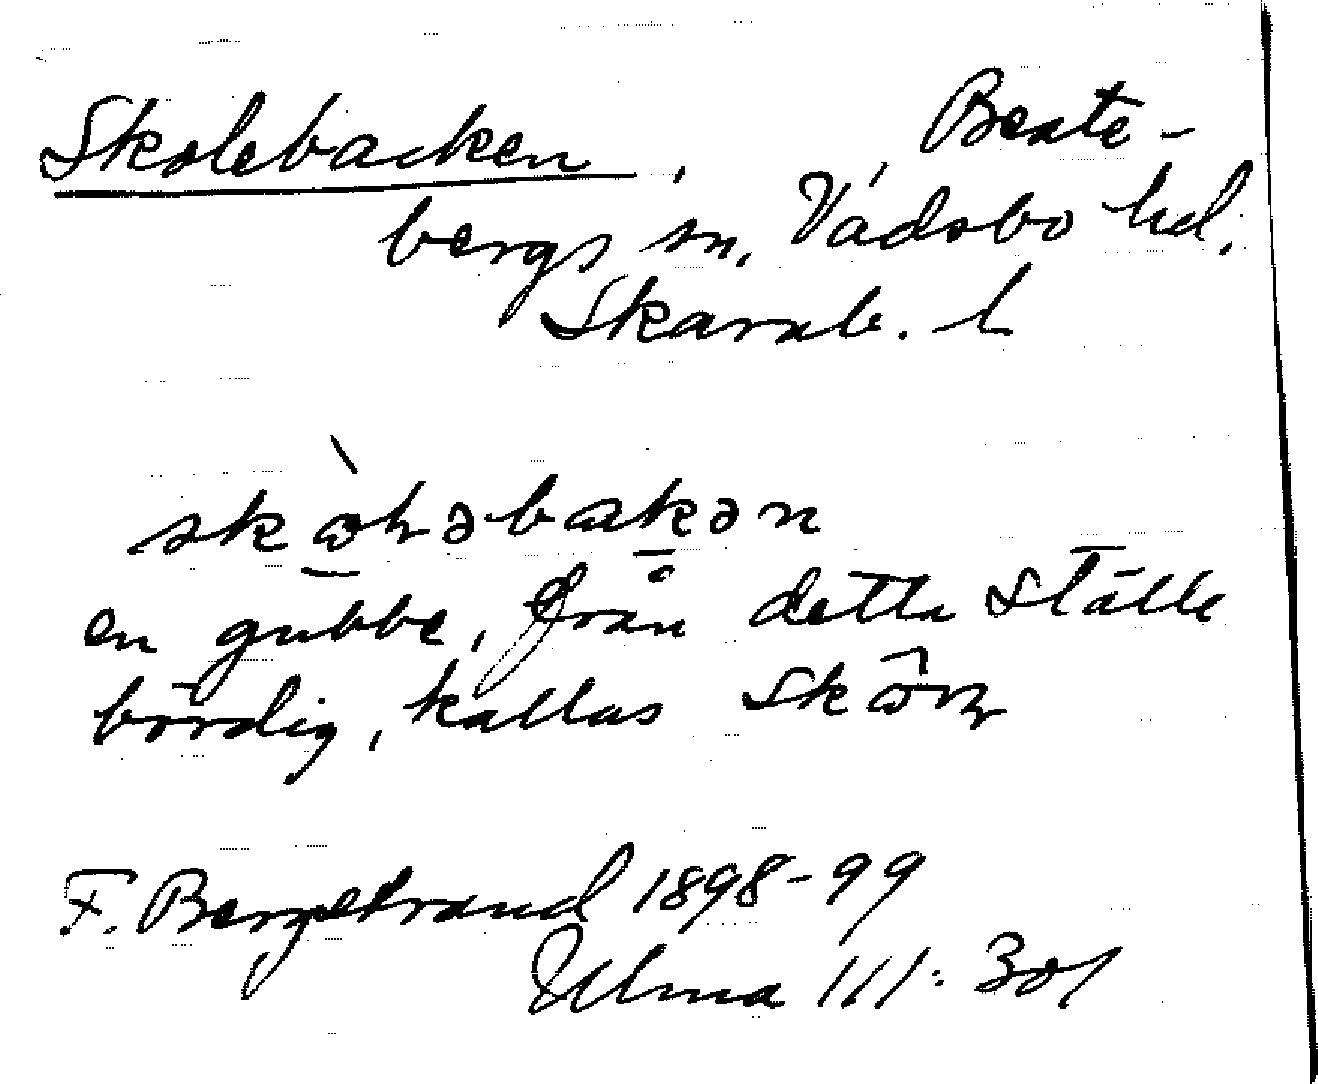 Skolebacken, Beate-
bergs sn, Vadsbo hd,
Skarab. l
skɷlɘbakən
en gubbe, från detta ställe
bördig, kallas Skɷ̂lɘ
F. Bergstrand 1898-99
Ulma 111:301